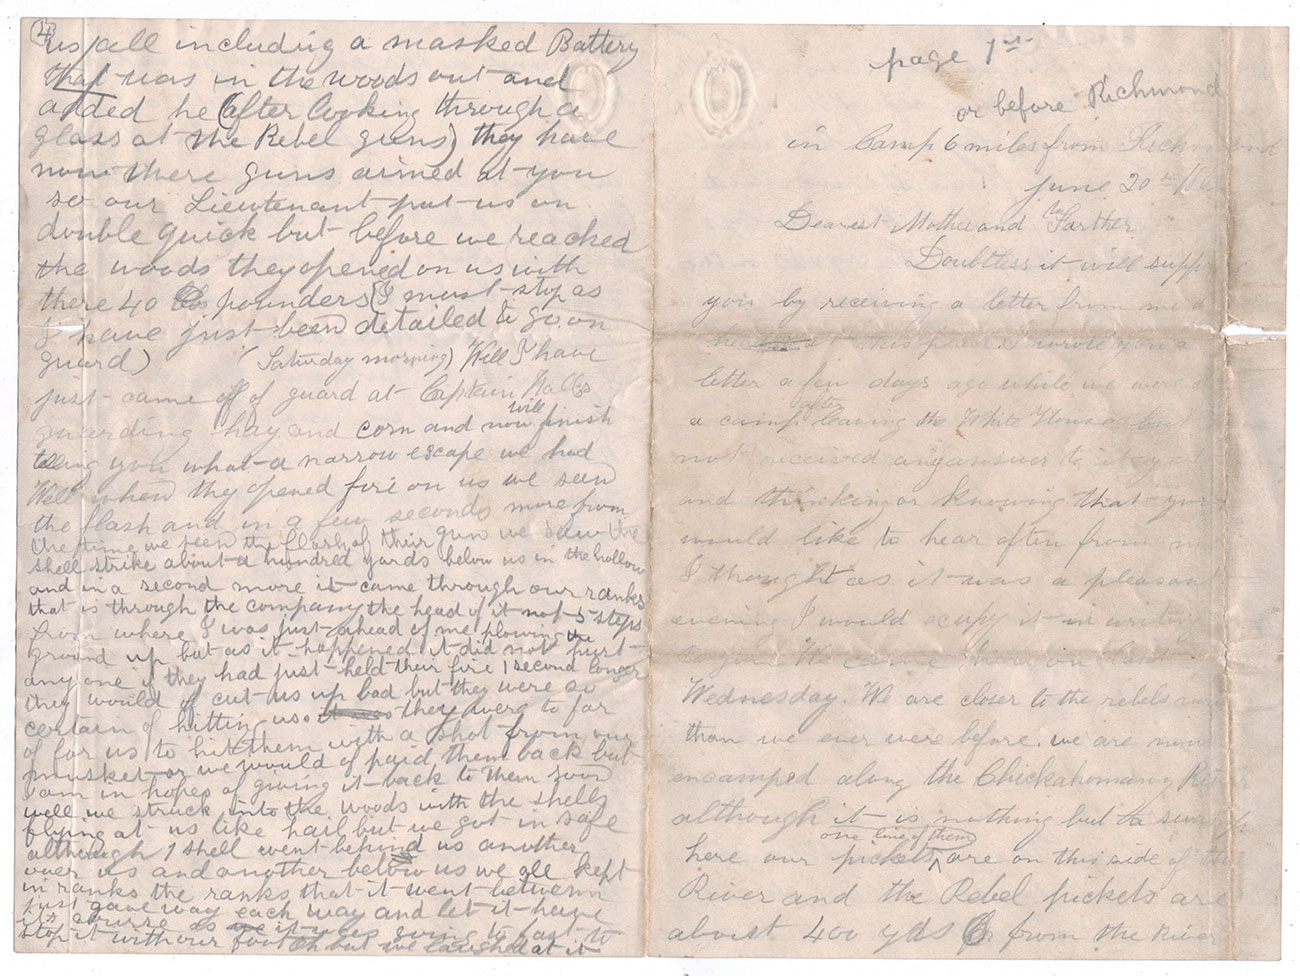 4
us all including a masked Battery
that was in the woods out and
added he (after Looking through a
glass at the Rebel guns) they have
now there guns aimed at you
so our Lieutenant put us on
double quick but before we reached
the woods they opened on us with
there 40 pounders (I must stop as
I have just been detailed to go on
guard) (Saturday morning) Well I have
just came off of guard at Captain Halls
guarding hay and corn and now will finish
telling you what a narrow escape we had
Well when they opened fire on us we seen
the flash and in a few seconds more from
the time we seen the flash of their gun we saw the
shell strike about a hundred yards below us in the hollow
and in a second more it came through our ranks
that is through the company the head of it not 5 steps
from where I was just ahead of me plowing the
ground up but as it happened it did not hurt
any one if they had just held their fire 1 second longer
they would of cut us up bad but they were so
certain of hitting us they were to far
of for us to hit them with a shot from our
musket or we would of paid them back but
I am in hopes of giving it back to them soon
well we struck into the woods with the shells
flying at us like hail but we got in safe
although 1 shell went behind us another
over us and another below us we all kept
in ranks the ranks that it went between
just gave way each way and let it have
its course as it was going to fast to
stop it with our foot but we laughed at it
page 1st
or before Richmond
in Camp 6 miles from Richmond
June 20th /
Dearest Mother and Farther
Doubtless it will
you by receiving a letter from me
at this place I wrote you a
letter a few days ago while we were at
a camp after leaving the White House but
not received any answer to it yet
and thinking or knowing that you
would like to hear often from me
I thought as it was a pleasant
evening I would ocupy it in writing
to you We came here on last
Wednesday. We are closer to the rebels now
than we ever were before. we are now
encamped along the Chickahomany River
although it is nothing but a swamp
here our pickets one line of them are on this side of the
River and the Rebel pickets are
about 400 yds from the River